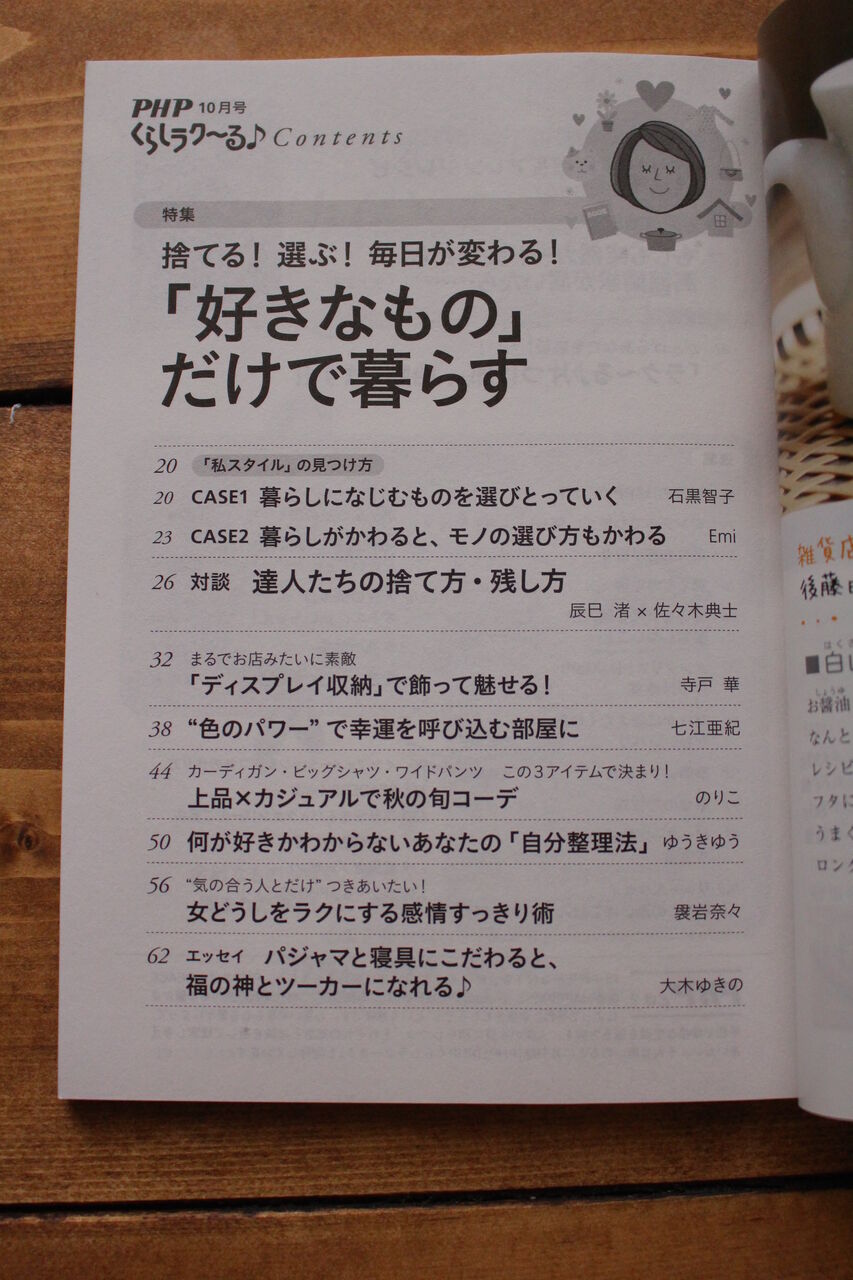 PHP 10月号
くらしラク〜る♪ Contents
特集
捨てる！ 選ぶ！ 毎日が変わる！
「好きなもの」
だけで暮らす
20 「私スタイル」の見つけ方
20 CASE1 暮らしになじむものを選びとっていく 石黒智子
23 CASE2 暮らしがかわると、モノの選び方もかわる Emi
26 対談 達人たちの捨て方・残し方
辰巳 渚×佐々木典士
32 まるでお店みたいに素敵
「ディスプレイ収納」で飾って魅せる！ 寺戸 華
38 “色のパワー”で幸運を呼び込む部屋に 七江亜紀
44 カーディガン・ビッグシャツ・ワイドパンツ この3アイテムで決まり！
上品×カジュアルで秋の旬コーデ のりこ
50 何が好きかわからないあなたの「自分整理法」 ゆうきゆう
56 “気の合う人とだけ”つきあいたい！
女どうしをラクにする感情すっきり術 袰岩奈々
62 エッセイ パジャマと寝具にこだわると、
福の神とツーカーになれる♪ 大木ゆきの
雑貨店
後藤
■白い
お醤油
なんと
レシピ
フタに
うまく
ロング